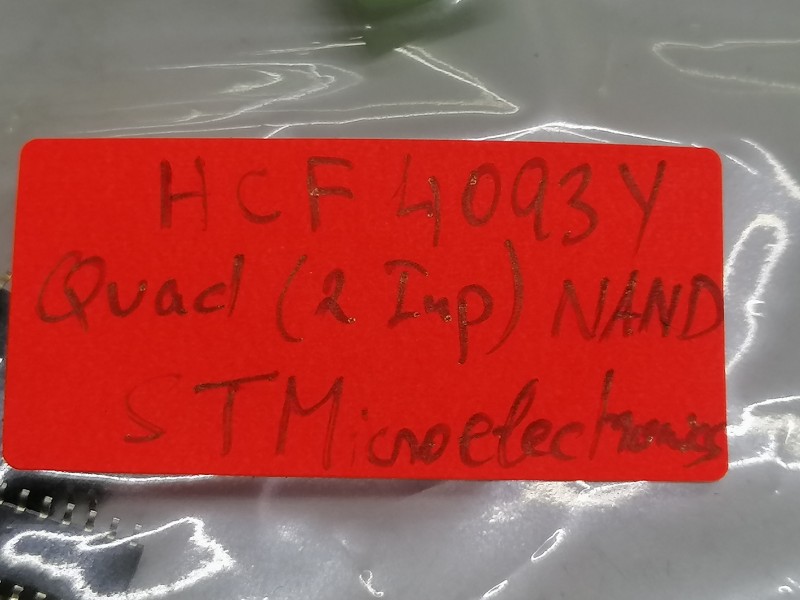 HCF 4093Y
Quad (2 Inp) NAND
STMicroelectronics